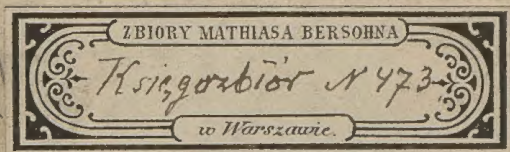 ZBIORY MATHIASA BERSOHNA
Księgozbiór N 473
w Warszawie.